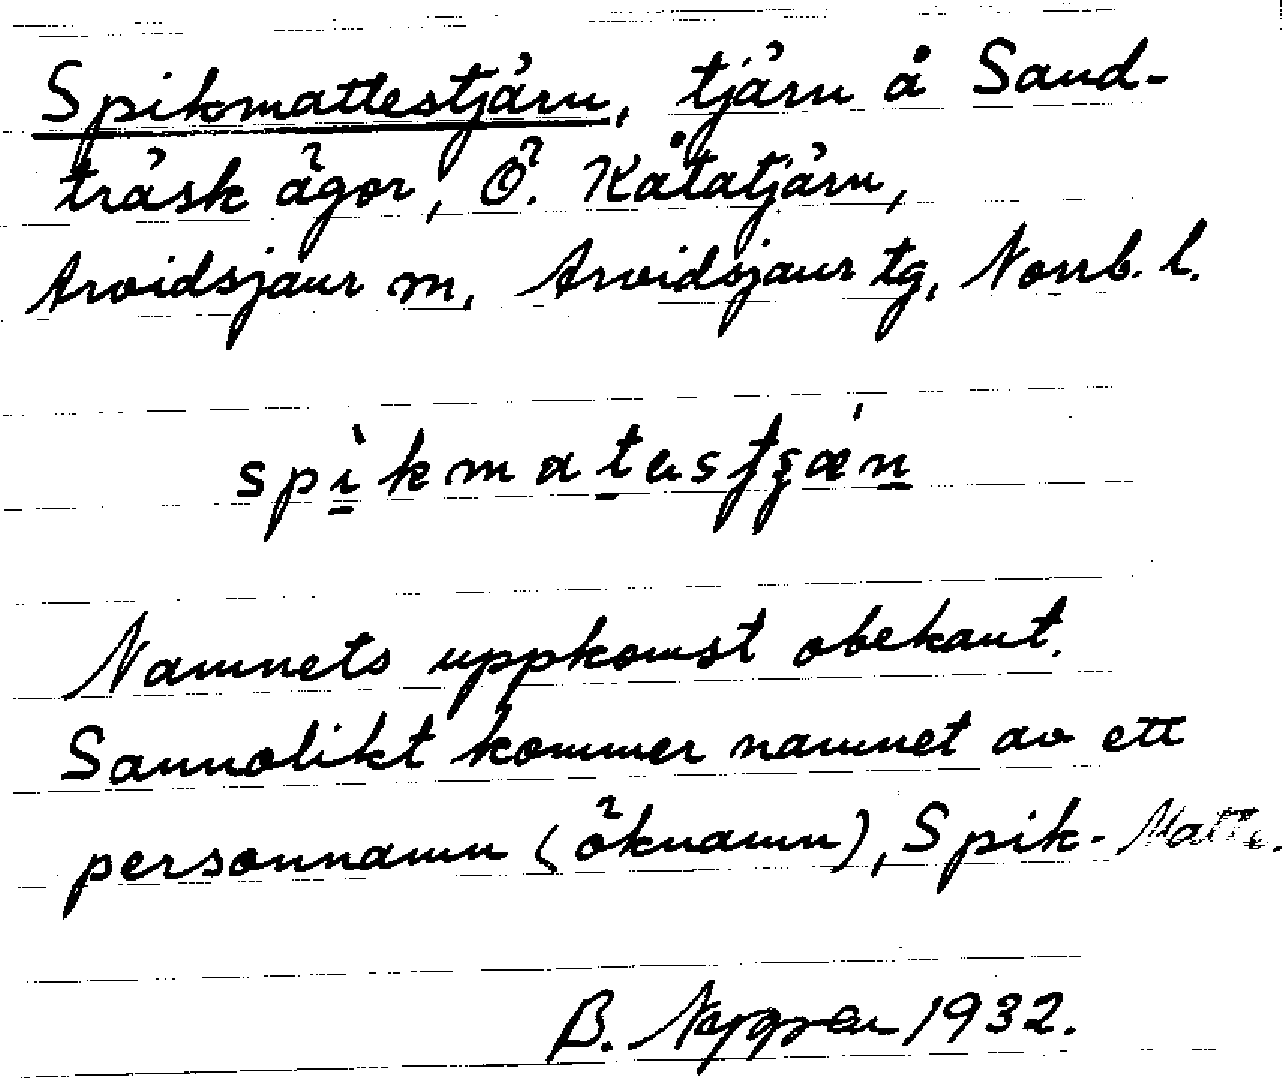 Spikmattestjärn, tjärn å Sand-
träsk ägor, Ö. Kåtatjärn,
Arvidsjaur m, Arvidsjaur tg, Norrb. l.
Namnets uppkomst obekant.
Sannolikt kommer namnet av ett
personnamn (öknamn), Spik-Matte.
B. 1932.